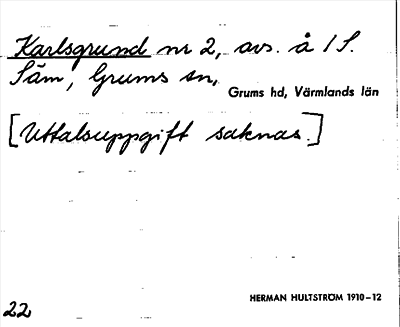 Karlsgrund nr 2, avs. å 1 S.
Säm, Grums sn,
Grums hd, Värmlands län
[Uttalsuppgift saknas.]
HERMAN HULTSTRÖM 1910–12
22